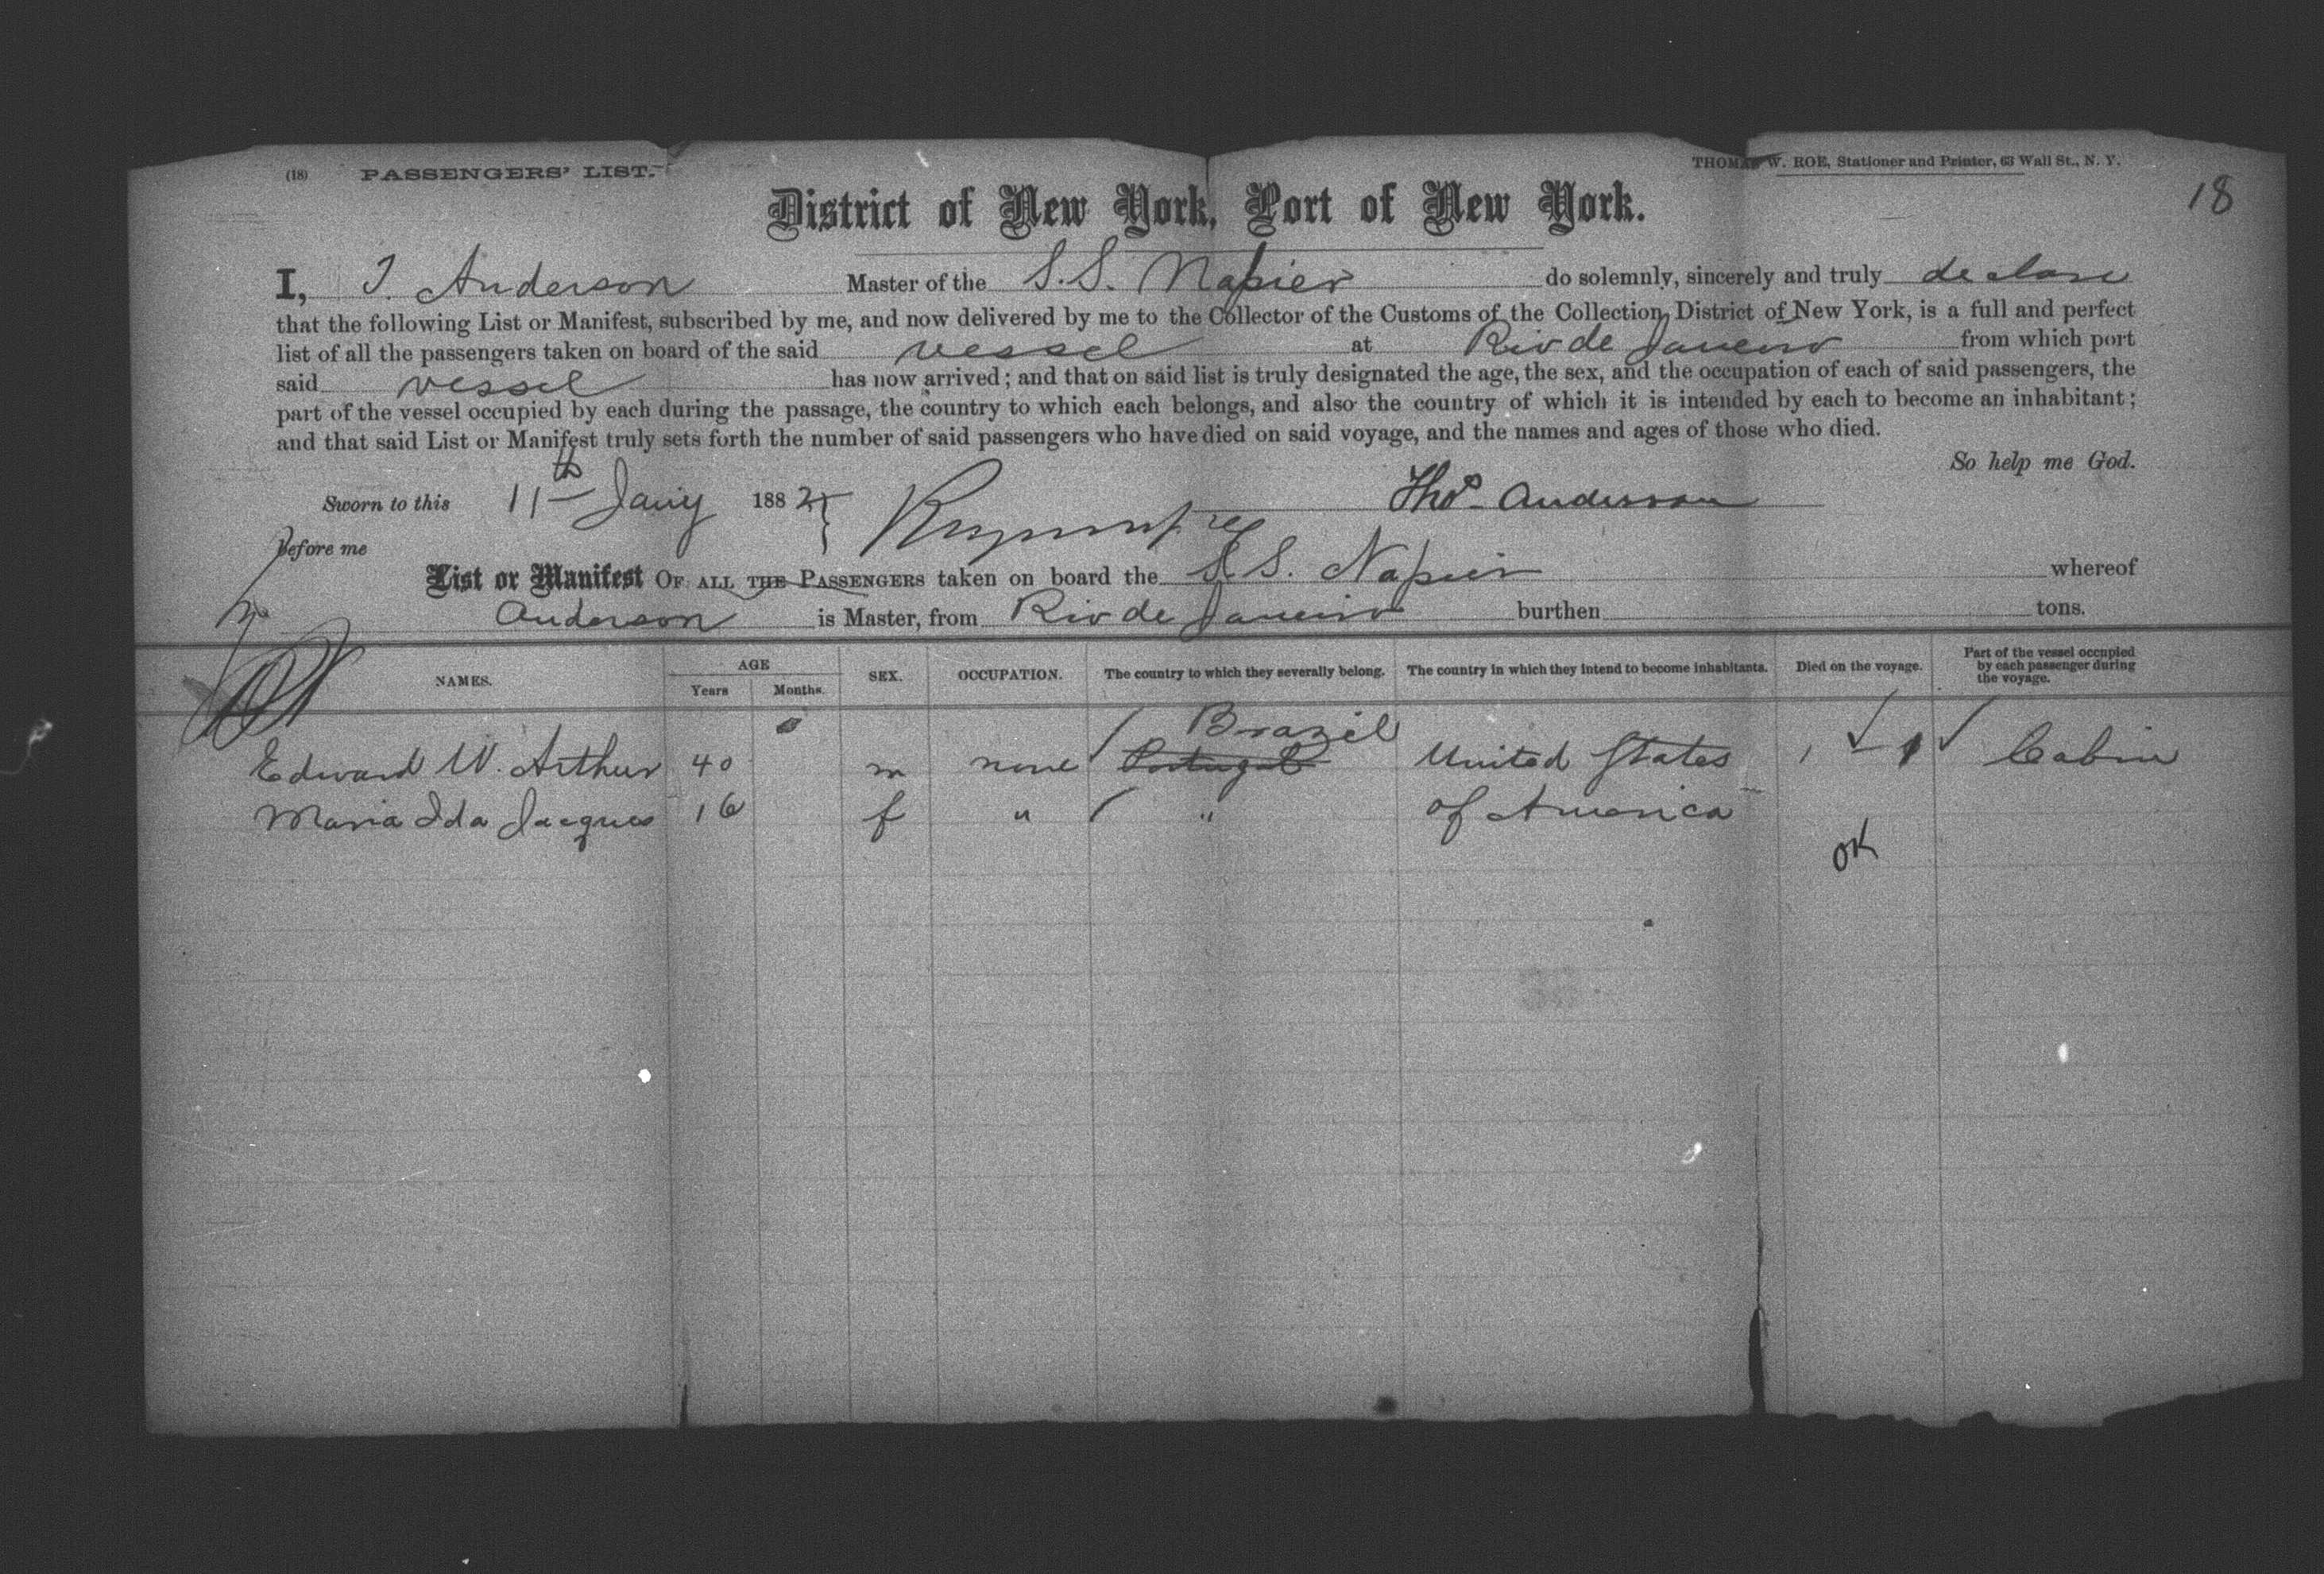 (18) PASSENGERS' LIST. THOMAS W. ROE, Stationer and Printer, 63 Wall St., N. Y.
18
District of New York, Port of New York.
I, T. Anderson Master of the S.S. Napier do solemnly, sincerely and truly declare
that the following List or Manifest, subscribed by me, and now delivered by me to the Collector of the Customs of the Collection District of New York, is a full and perfect
list of all the passengers taken on board of the said vessel at Rio de Janeiro from which port
said vessel has now arrived; and that on said list is truly designated the age, the sex, and the occupation of each of said passengers, the
part of the vessel occupied by each during the passage, the country to which each belongs, and also the country of which it is intended by each to become an inhabitant;
and that said List or Manifest truly sets forth the number of said passengers who have died on said voyage, and the names and ages of those who died.
So help me God.
Sworn to this 11th Jany 1882 Thos. Anderson
Before me
List or Manifest OF ALL THE PASSENGERS taken on board the S.S. Napier whereof
Anderson is Master, from Rio de Janeiro burthen tons.
NAMES. AGE Years Months. SEX. OCCUPATION. The country to which they severally belong. The country in which they intend to become inhabitants. Died on the voyage. Part of the vessel occupied by each passenger during the voyage.
Brazil
Edward W. Arthur 40 m none Portugal United States Cabin
Maria Ida Jacques 16 f " " of America
OK